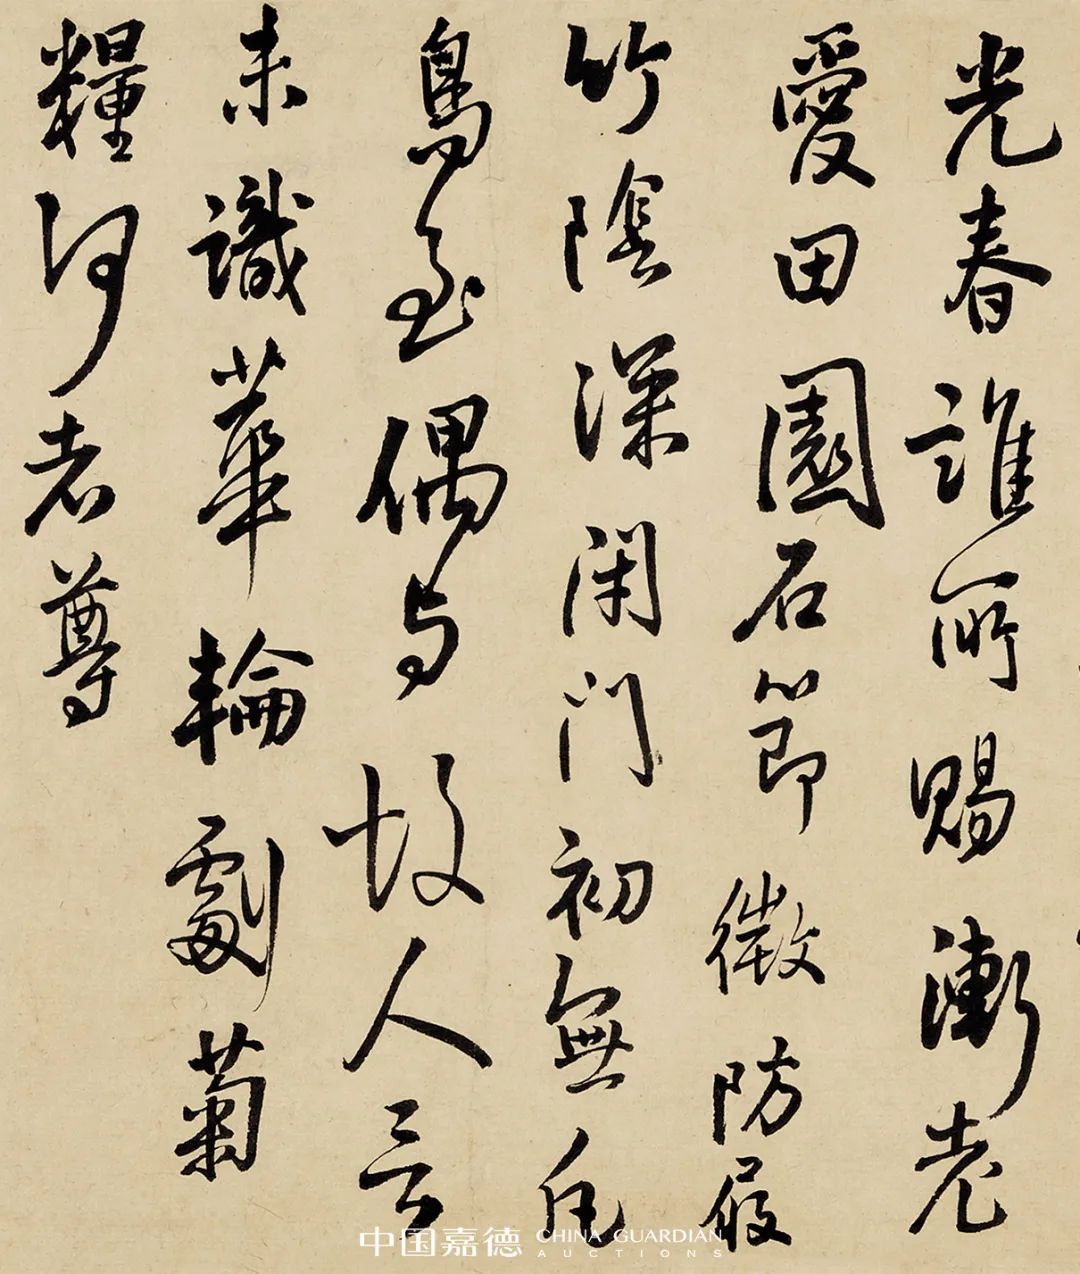 光春誰所賜漸老
愛田園石節微防屐
竹陰深閑門初無凡
鳥至偶與故人言
未識華輪劇菊
糧何老尊
中国嘉德 CHINA GUARDIAN
AUCTIONS